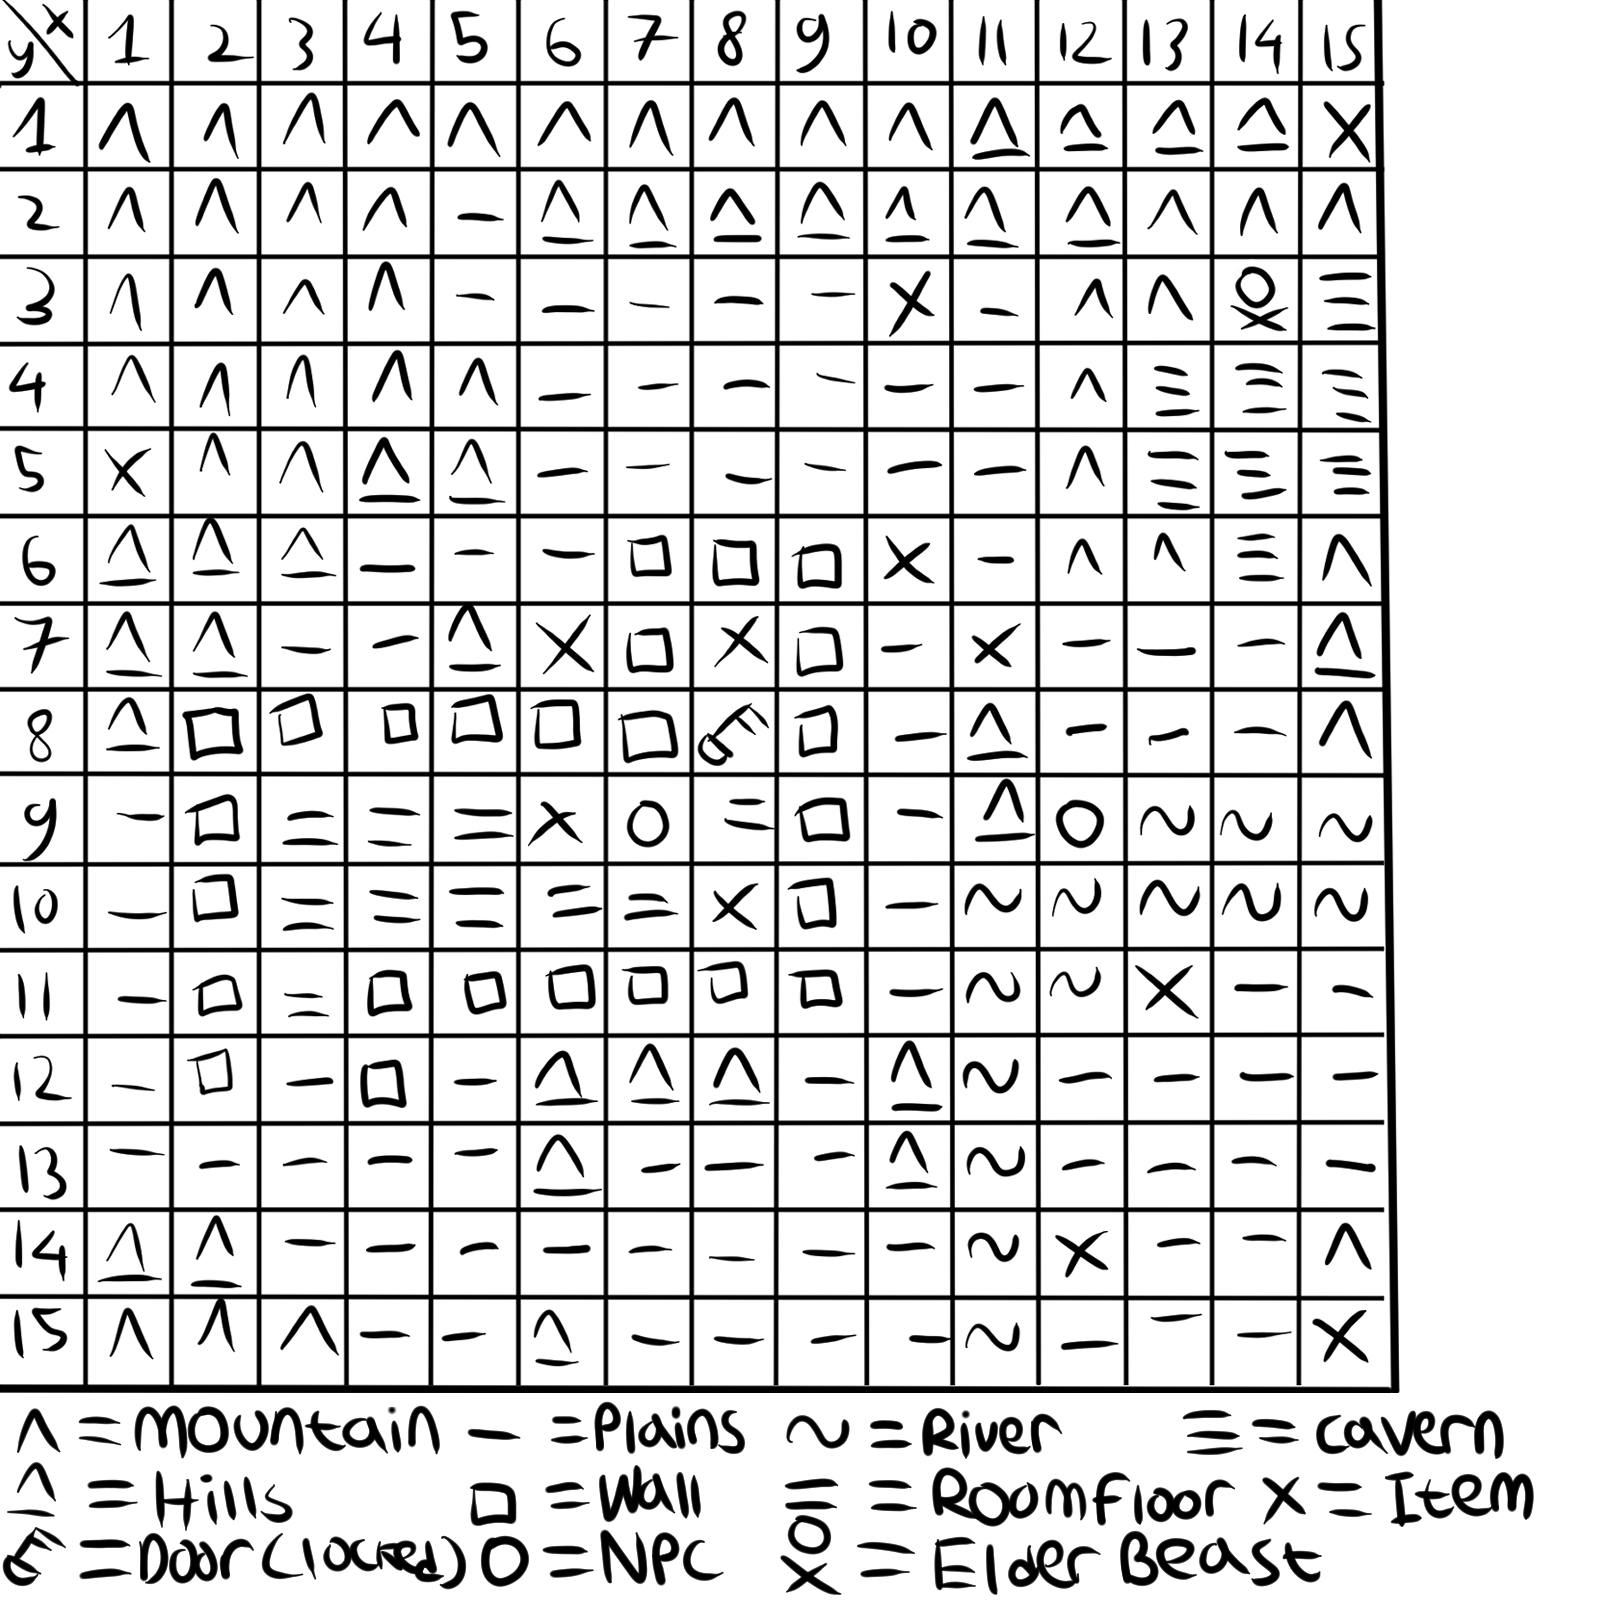 y x 1 2 3 4 5 6 7 8 9 10 11 12 13 14 15
1 ^ ^ ^ ^ ^ ^ ^ ^ ^ ^ ^ ^ ^ ^ X
2 ^ ^ ^ ^ - ^ ^ ^ ^ ^ ^ ^ ^ ^ ^
3 ^ ^ ^ ^ - - - - - X - ^ ^ O X ☰
4 ^ ^ ^ ^ ^ - - - - - - ^ ☰ ☰ ☰
5 X ^ ^ ^ ^ - - - - - - ^ ☰ ☰ ☰
6 ^ ^ ^ - - - □ □ □ X - ^ ^ ☰ ^
7 ^ ^ - - ^ X □ X □ - X - - - ^
8 ^ □ □ □ □ □ □ E □ - ^ - - - ^
9 - □ = = = X O = □ - ^ O ~ ~ ~
10 - □ = = = = = X □ - ~ ~ ~ ~ ~
11 - □ = □ □ □ □ □ □ - ~ ~ X - -
12 - □ - □ - ^ ^ ^ - ^ ~ - - - -
13 - - - - - ^ - - - ^ ~ - - - -
14 ^ ^ - - - - - - - - ~ X - - ^
15 ^ ^ ^ - - ^ - - - - ~ - - - X
^ = Mountain - = Plains ~ = River ☰ = cavern
^ = Hills □ = Wall = = Room floor X = Item
E = Door (locked) O = NPC O X = Elder Beast